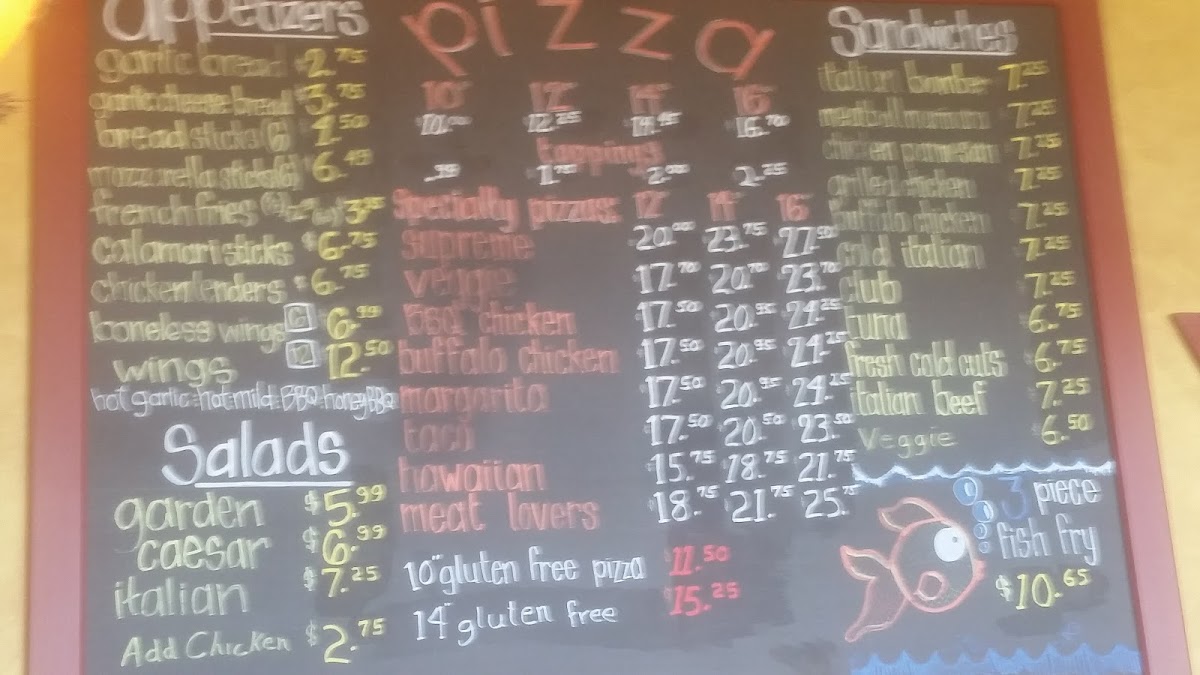 appetizers
garlic bread $2.75
garlic cheese bread $3.75
bread sticks
mozzarella sticks 6.49
french fries $3.
calamari sticks $6.75
chicken tenders $6.75
boneless wings 6.99
wings 12 12.50
hot garlic hot mild BBQ honey BBQ
Salads
garden $5.99
caesar $6.99
italian $7.25
Add Chicken $2.75
pizza
10" 12" 14" 16"
12.25
toppings
.99 2.25
Specialty pizzas: 12" 14" 16"
supreme 20.00 23.75 27.50
veggie 17.70 20.70 23.70
BBQ chicken 17.50 20.95 24.25
buffalo chicken 17.50 20.95 24.25
margarita 17.50 20.95 24.25
taco 17.50 20.50 23.50
hawaiian 15.75 18.75 21.75
meat lovers 18.75 21.75 25.75
10" gluten free pizza $11.50
14" gluten free $15.25
Sandwiches
italian bomber 7.25
meatball 7.25
chicken parmesan 7.25
grilled chicken 7.25
buffalo chicken 7.25
cold italian 7.25
club 7.25
tuna 6.75
fresh cold cuts 6.75
italian beef 7.25
Veggie 6.50
3 piece
fish fry
$10.65